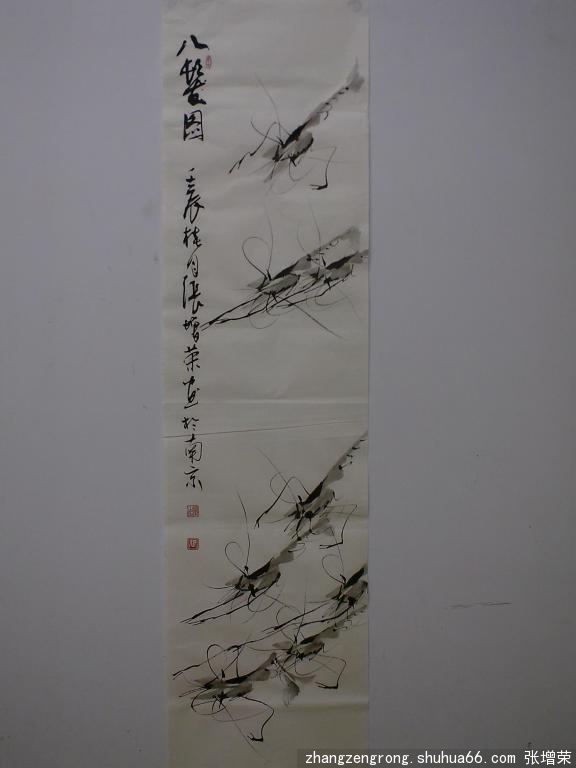 八图
壬辰桂月张增荣画於南京
zhangzengrong.shuhua66.com 张增荣